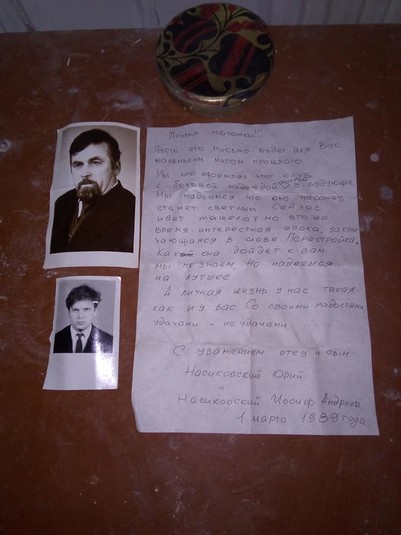 Пусть это письмо будет для Вас
маленьким мигом прошлого
Мы оформляя этот клуб
с большой надеждой в будущее.
Мы надеемся что оно наконец
станет светлым. Сейчас
идет тяжелая но в то же
время интересная эпоха, заклю
чающаяся в слове Перестройка.
Какой она дойдет к вам
мы не знаем. Но надеемся
на лутшее
А личная жизнь у нас такая
как и у вас Со своими радостями
удачами и неудачами
С уважением отец и сын
Насиковский Юрий
и
Насиковский Иосиф Андреев
1 марта 1989 года